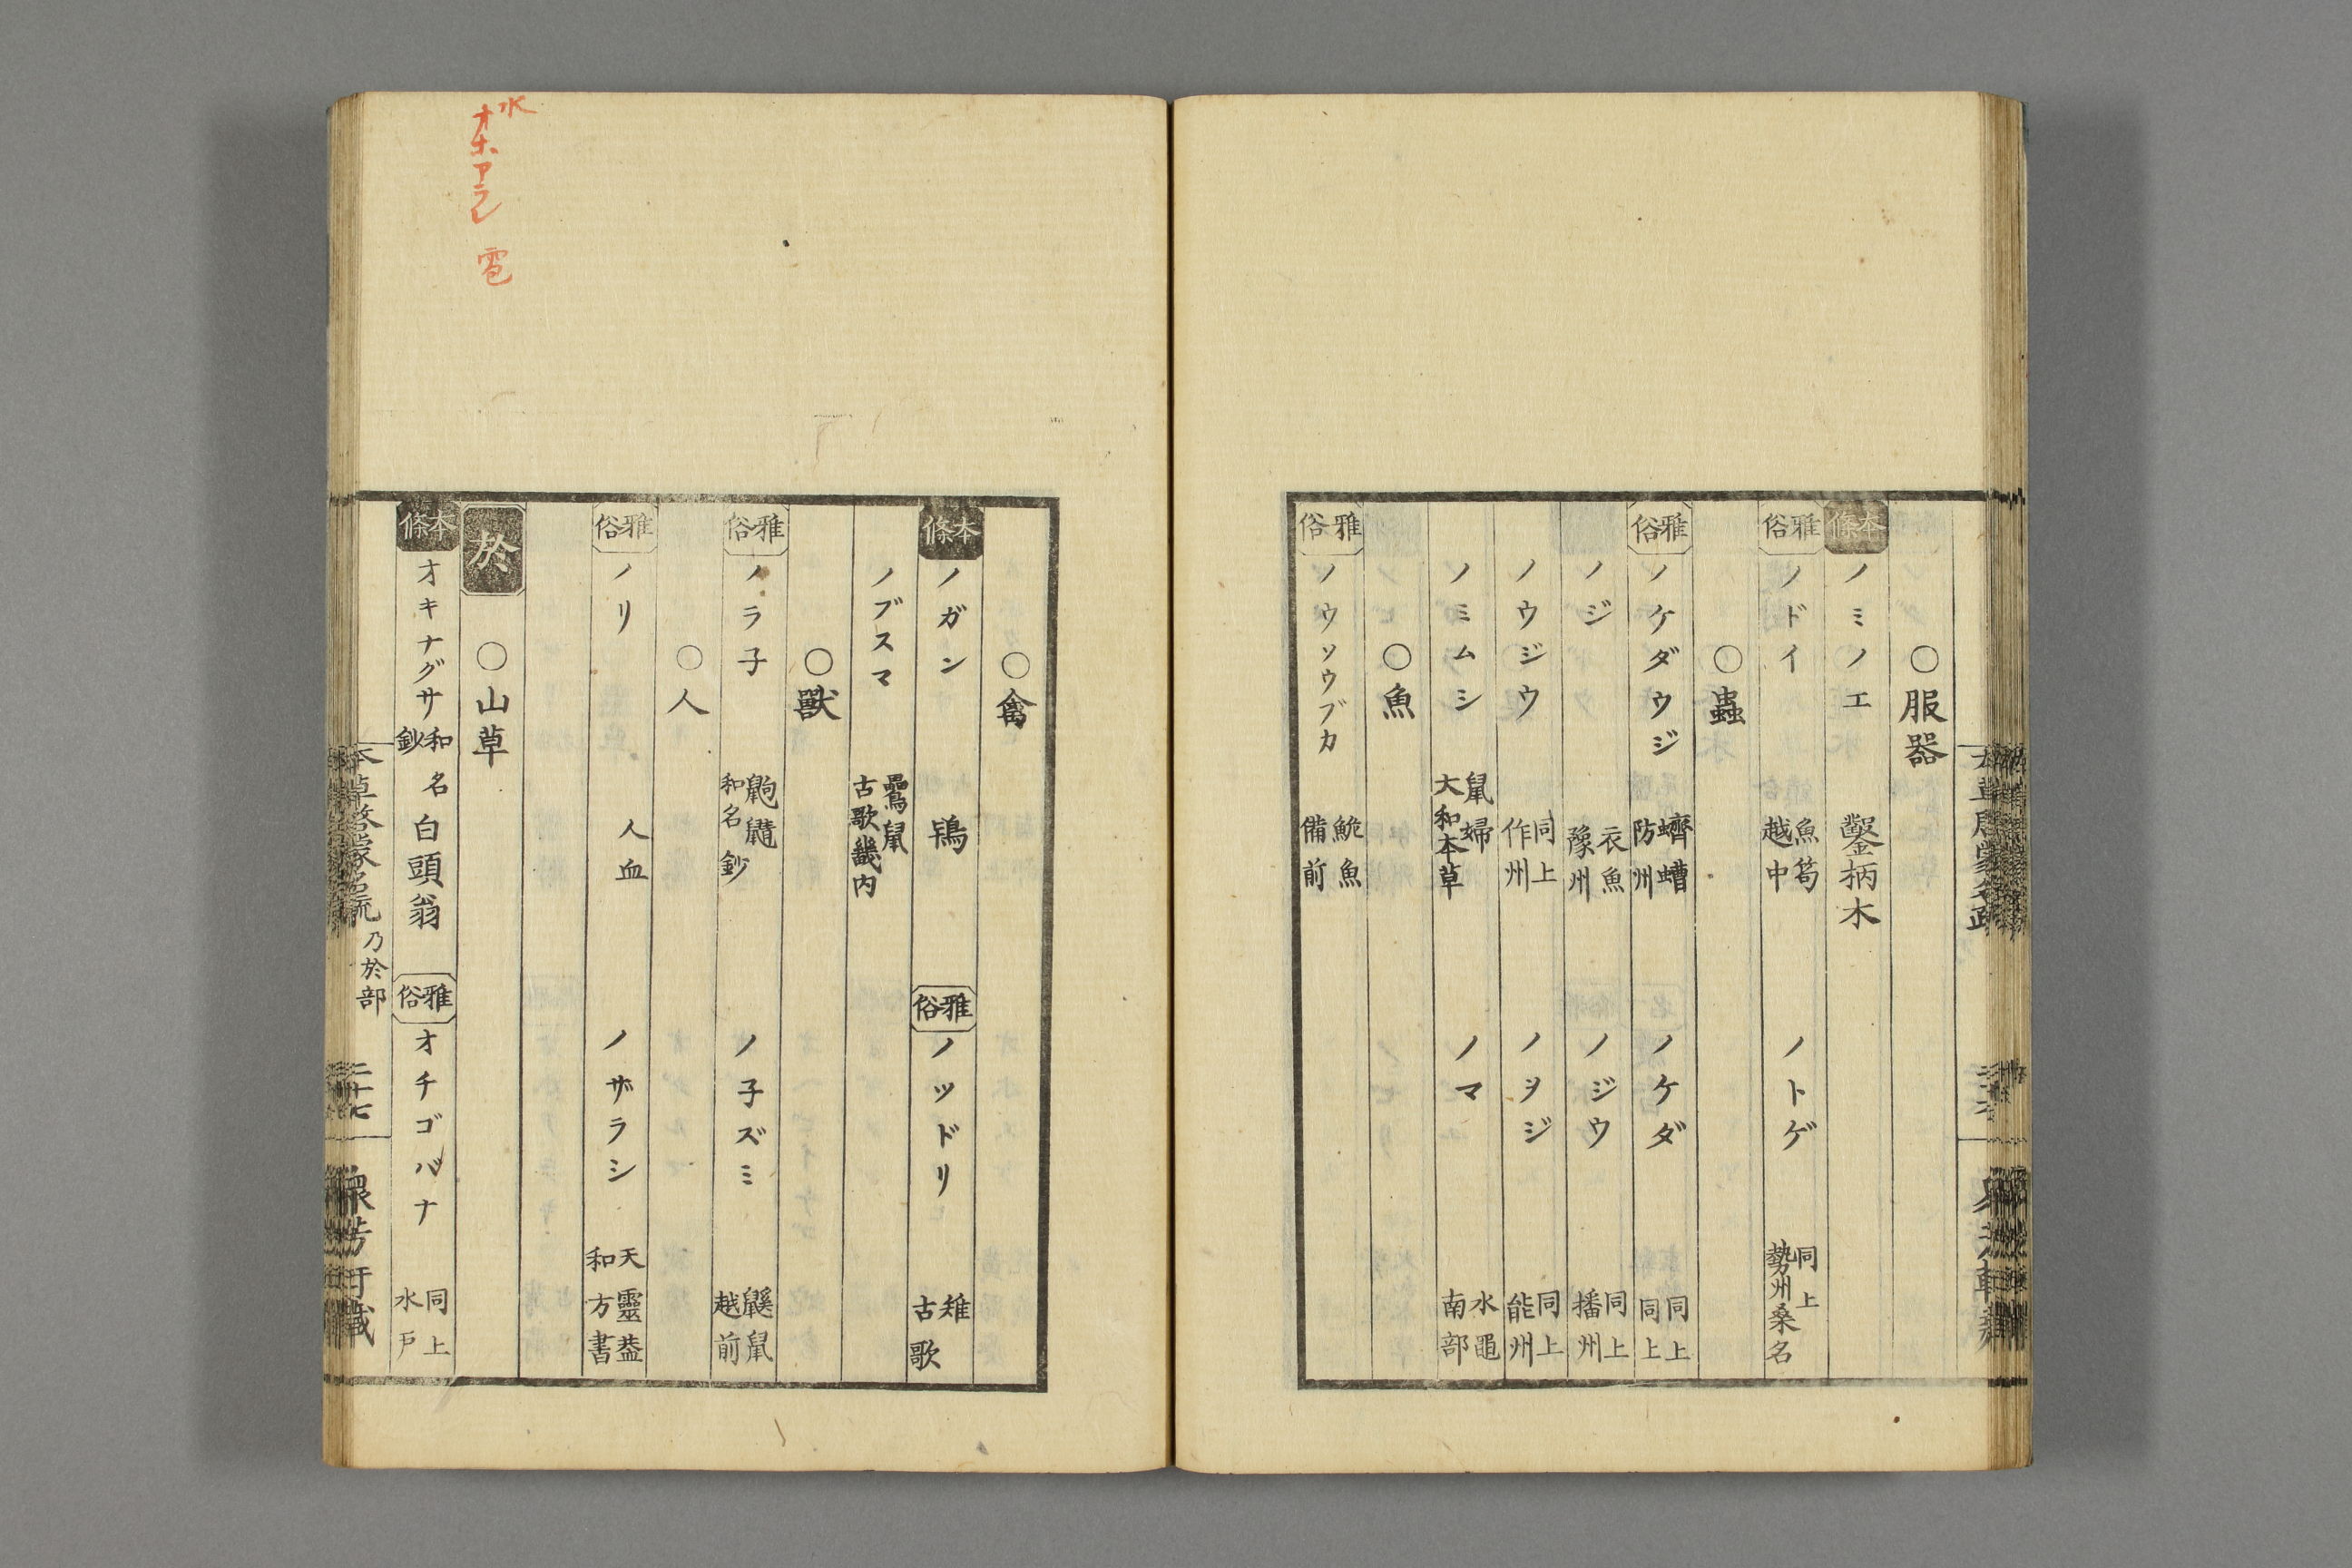 〇服器
本條 ノミノエ 鑿柄木
雅俗 ノドイ 魚笱 越中 ノトゲ 同上 勢州桑名
〇蟲
雅俗 ノケダウジ 蠐螬 防州 ノケダ 同上 同上
ノジ 衣魚 豫州 ノジウ 同上 播州
ノウジウ 同上 作州 ノヲジ 同上 能州
ノミムシ 鼠婦 大和本草 ノマ 水黽 南部
〇魚
雅俗 ノウソウブカ 鮠魚 備前
〇禽
本條 ノガン 鴇 雅俗 ノツドリ 雉 古歌
ノブスマ 鸓鼠 古歌畿内
〇獸
雅俗 ノラ子 和名鈔 ノ子ズミ 鼷鼠 越前
〇人
雅俗 ノリ 人血 ノザラシ 天靈葢 和方書
於 〇山草
本條 オキナグサ 和名鈔 白頭翁 雅俗 オチゴバナ 同上 水戸
本草啓蒙名疏 乃於部 二十七
水
オホアラレ 雹